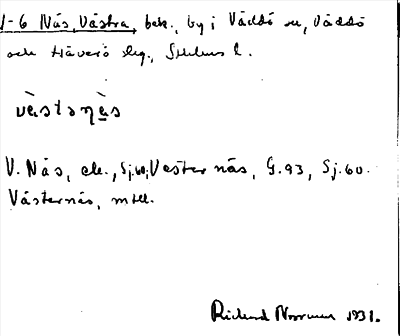 1-6 Näs, Västra, bek., by i Väddö sn, Väddö
och Häverö slg., Sthlms l.
västanä̀s
V. Näs, ek., Sj.60; Vesternäs, G.93, Sj.60.
Västernäs, mtll.
Richard Norrman 1931.